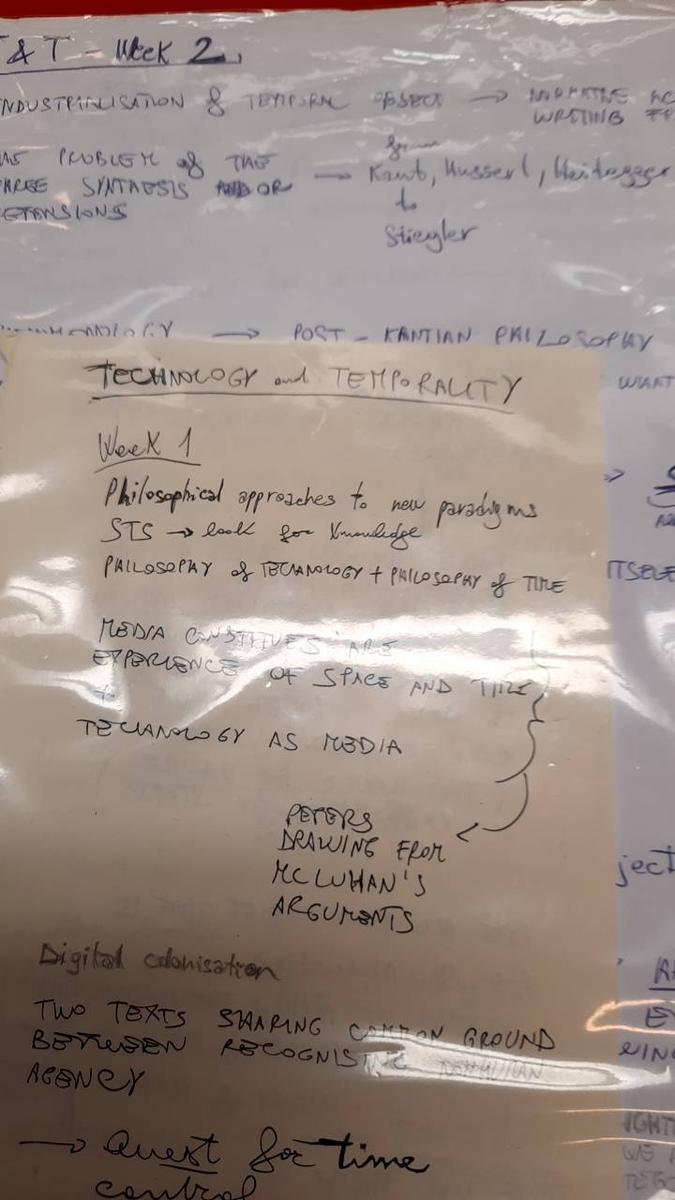 T & T - Week 2
INDUSTRIALISATION & TEMPORAL OBJECT →
WRITING
AS PROBLEM of THE
THREE SYNTHESIS AND/OR
→ from
Kant, Husserl, Heidegger
to
Stiegler
→ POST - KANTIAN PHILOSOPHY
WHAT
TECHNOLOGY and TEMPORALITY
Week 1
Philosophical approaches to new paradigms
STS → look for knowledge
PHILOSOPHY of TECHNOLOGY + PHILOSOPHY of TIME
ITSELF
MEDIA ARE
EXPERIENCE OF SPACE AND TIME
+
TECHNOLOGY AS MEDIA
PETERS
DRAWING FROM
MCLUHAN'S
ARGUMENTS
ject
Digital colonisation
TWO TEXTS SHARING COMMON GROUND
BETWEEN NONHUMAN
AGENCY
→ Quest for time
control